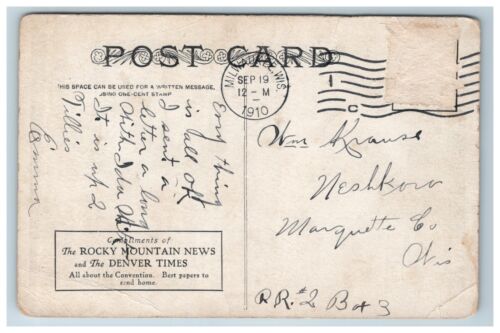 POST CARD
THIS SPACE CAN BE USED FOR A WRITTEN MESSAGE,
USING ONE-CENT STAMP
MILWAUKEE, WIS.
SEP 19
12 - M
1910
1
C
Every thing
is hell of
I sent a
letter a long
With Ida
It is up 2
Tillies
Emma
Wm Krause
Neshkoro
Marquette Co
Wis
R.R. #2 Box 3
Compliments of
The ROCKY MOUNTAIN NEWS
and The DENVER TIMES
All about the Convention. Best papers to
send home.